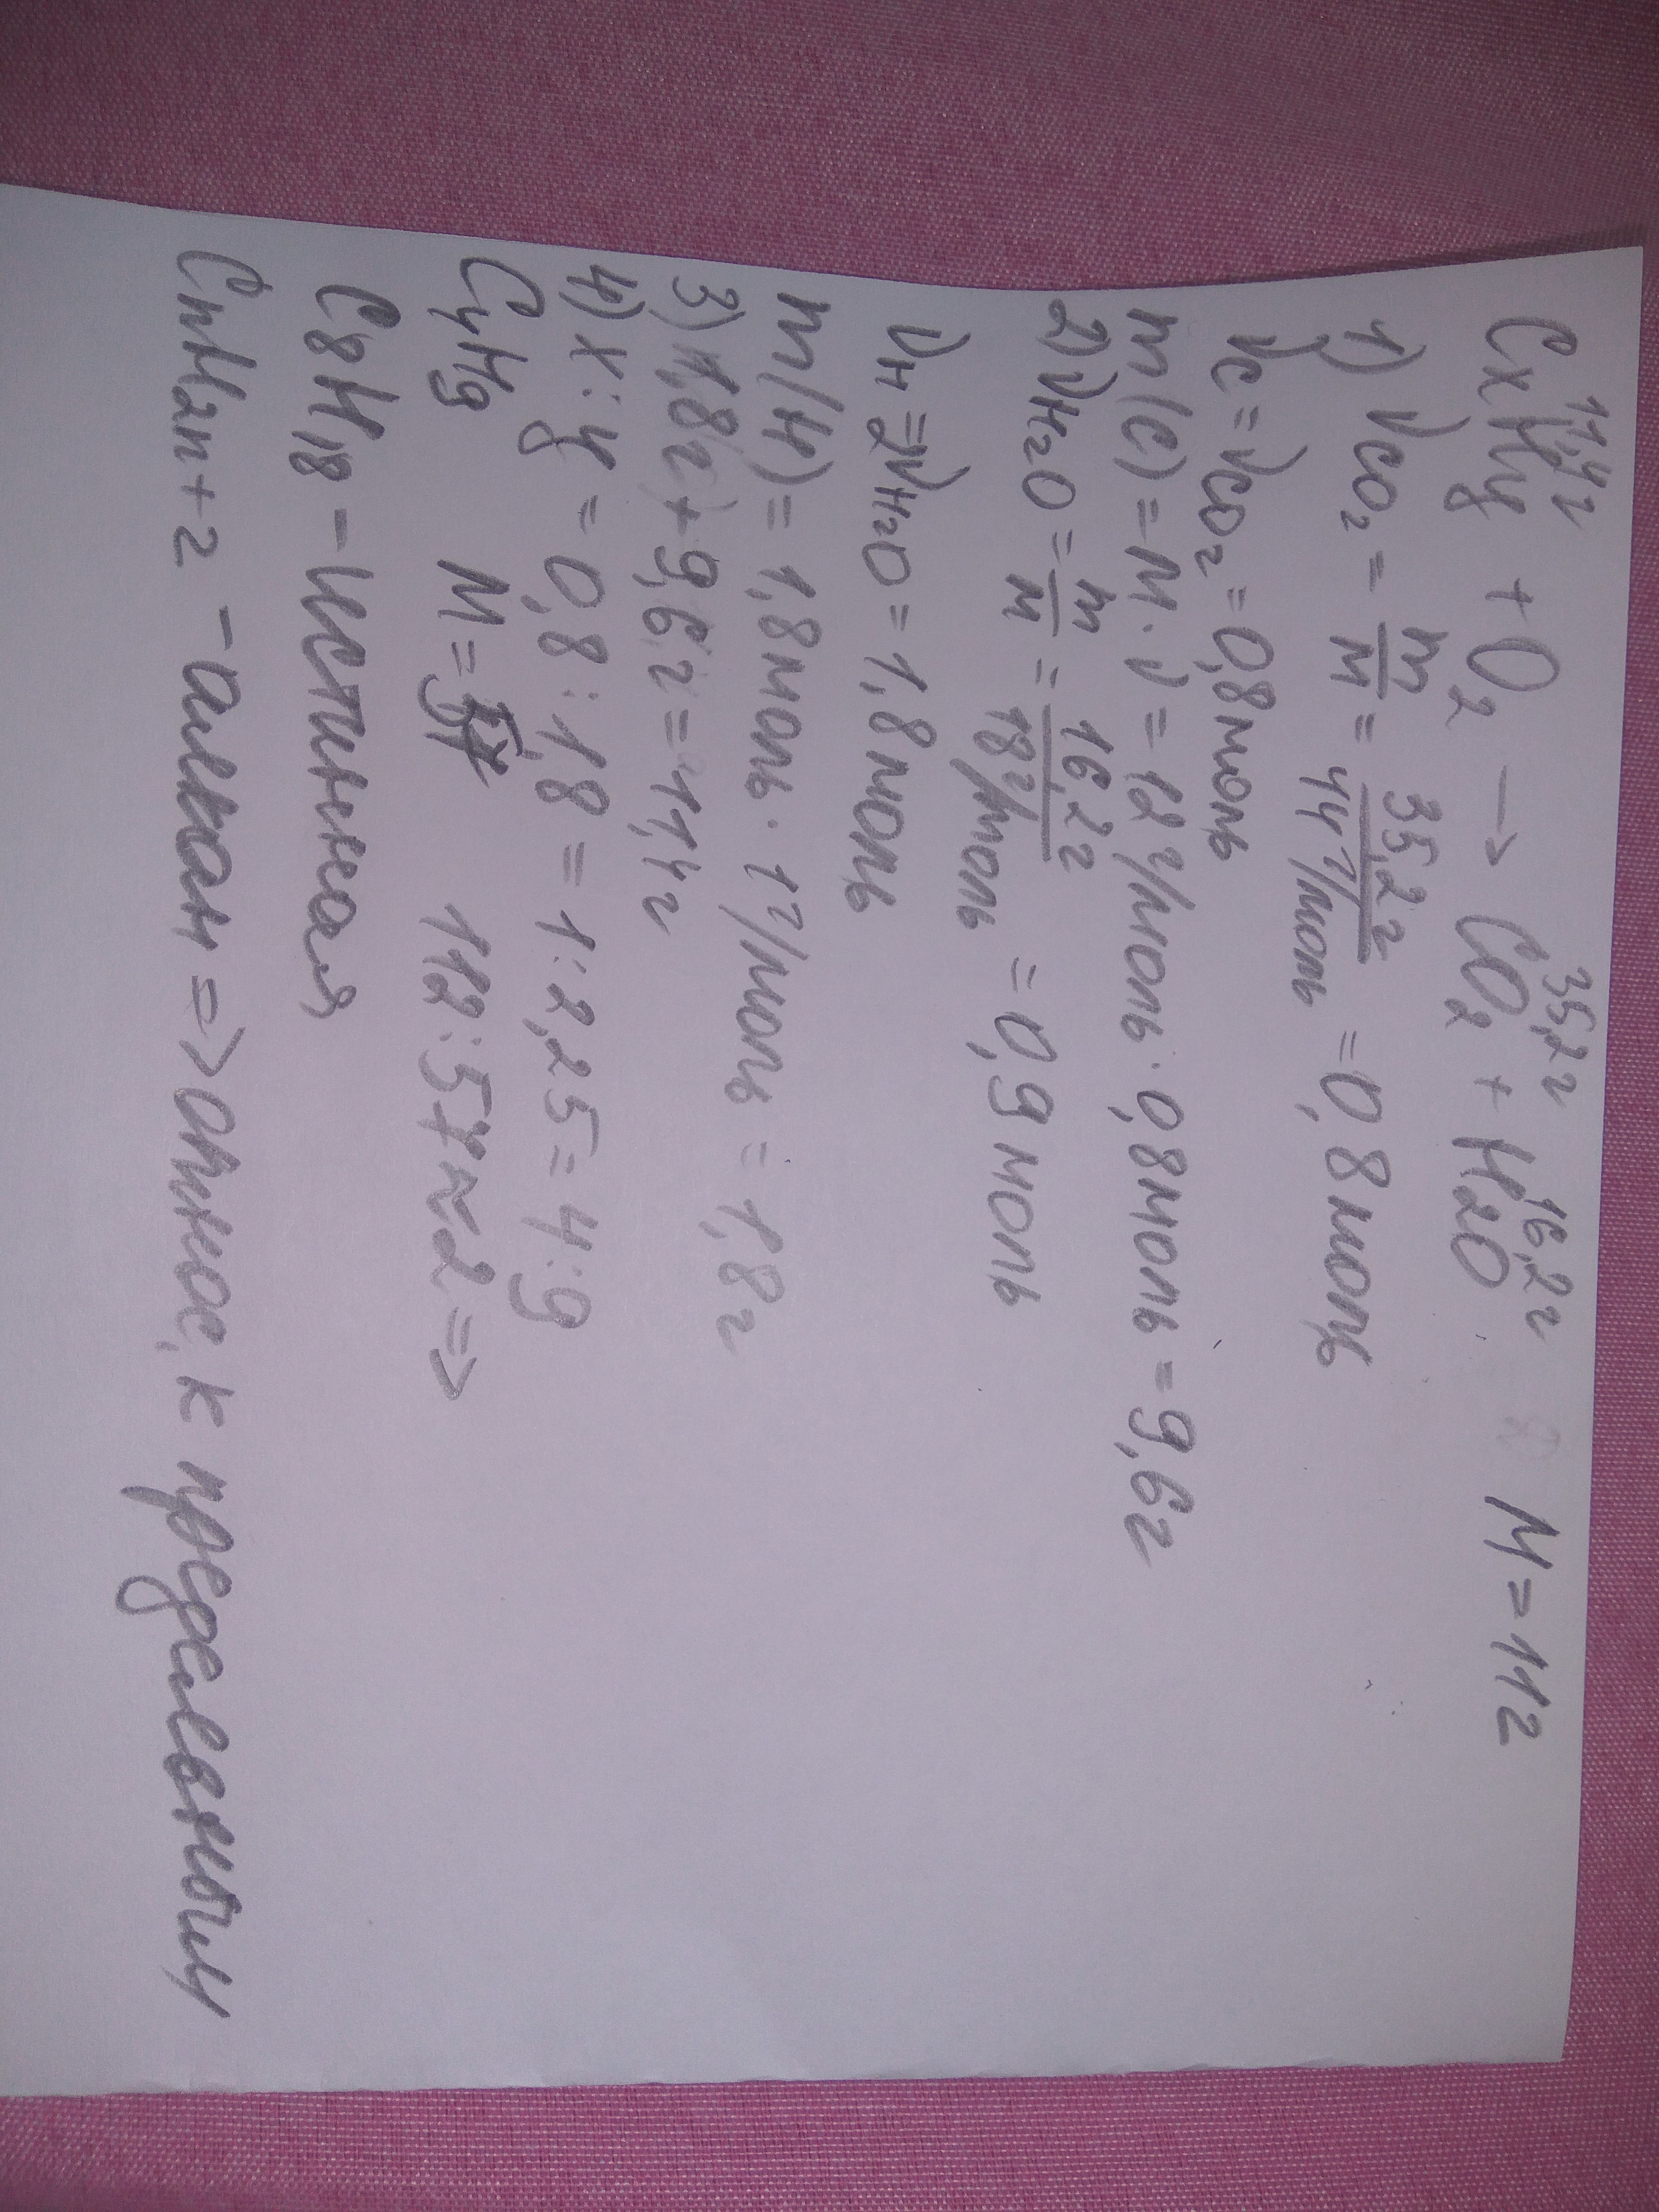 11,4г 35,2г 16,2г
CxHy + O2 → CO2 + H2O M=112
1) νCO2 = m/M = 35,2г/44г/моль = 0,8моль
νC = νCO2 = 0,8моль
m(C) = M·ν = 12г/моль·0,8моль = 9,6г
2) νH2O = m/M = 16,2г/18г/моль = 0,9моль
νH = 2νH2O = 1,8моль
m(H) = 1,8моль·1г/моль = 1,8г
3) 1,8г + 9,6г = 11,4г
4) x:y = 0,8:1,8 = 1:2,25 = 4:9
C4H9 M=57 112:57≈2 =>
C8H18 - Истинная
CnH2n+2 - алкан => относ. к предельным